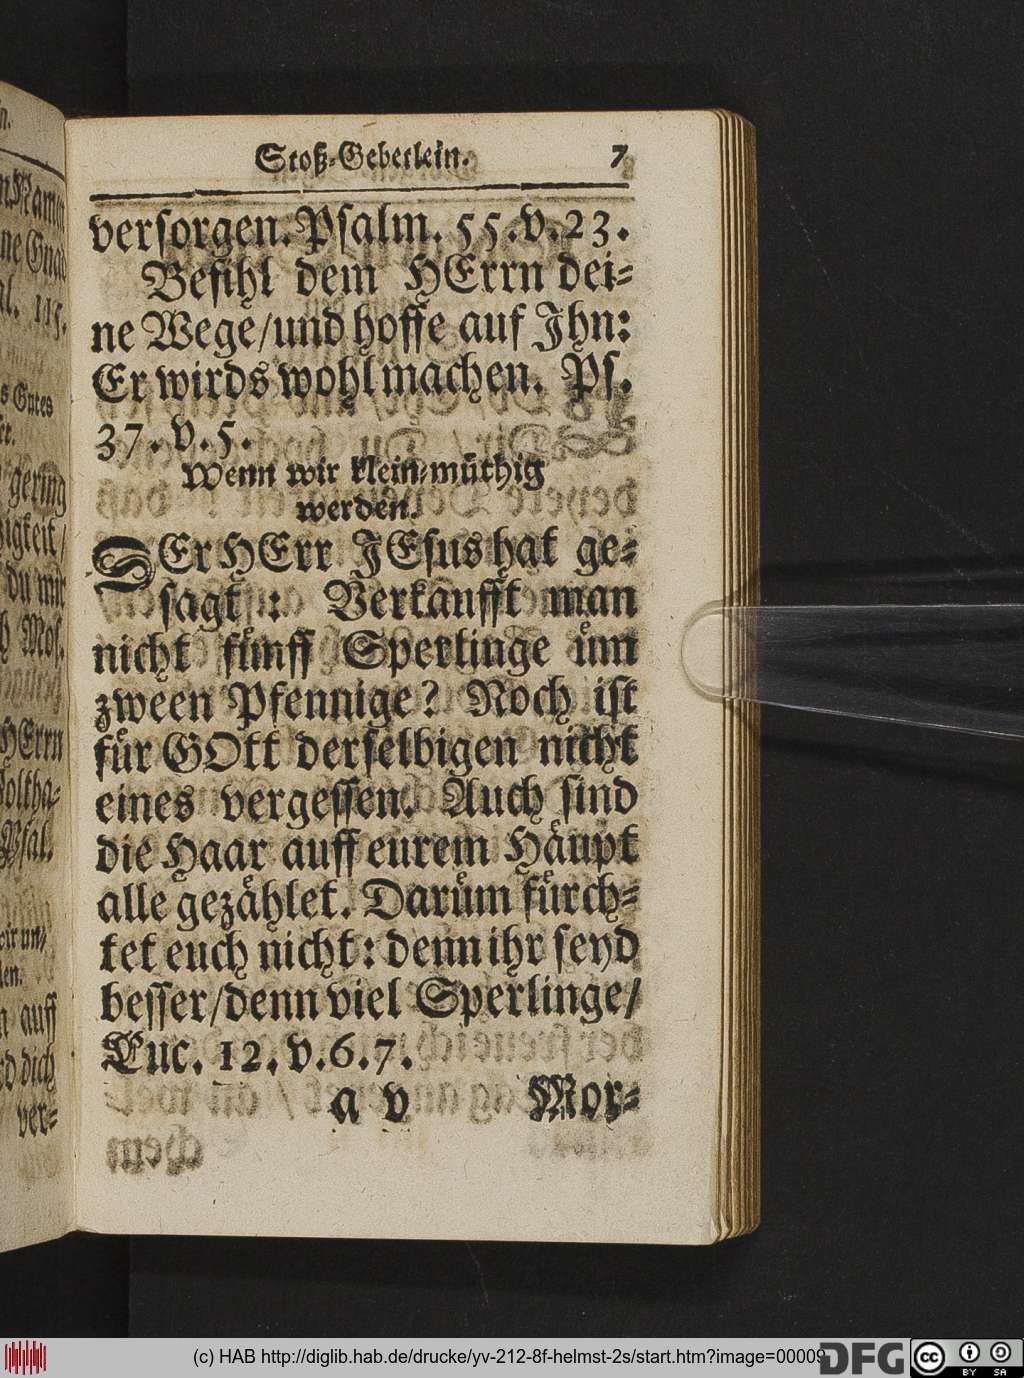 Stoß-Gebetlein. 7
versorgen. Psalm. 55. v. 23.
Befihl dem HErrn dei-
ne Wege/und hoffe auf Ihn:
Er wirds wohl machen. Ps.
37. v. 5.
Wenn wir klein-müthig
werden.
DEr HErr JEsus hat ge-
sagt: Verkaufft man
nicht fünff Sperlinge üm
zween Pfennige? Noch ist
für GOtt derselbigen nicht
eines vergessen. Auch sind
die Haar auff eurem Häupt
alle gezählet. Darüm fürch-
tet euch nicht: denn ihr seyd
besser/denn viel Sperlinge/
Luc. 12. v. 6. 7.
a v Mor-
n.
s Gutes
gering
igkeit/
du mir
Mos.
HErrn
Psal.
auff
dich
ver-
(c) HAB http://diglib.hab.de/drucke/yv-212-8f-helmst-2s/start.htm?image=00009
DFG
cc BY SA